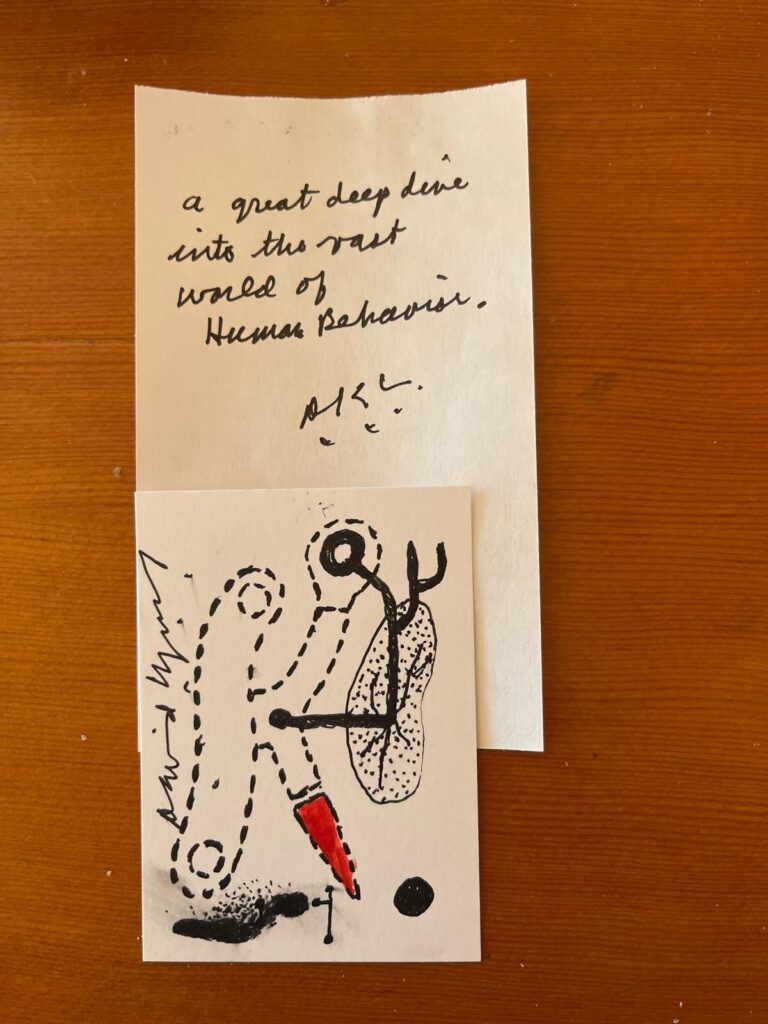 a great deep dive
into the vast
world of
Human Behavior.
David